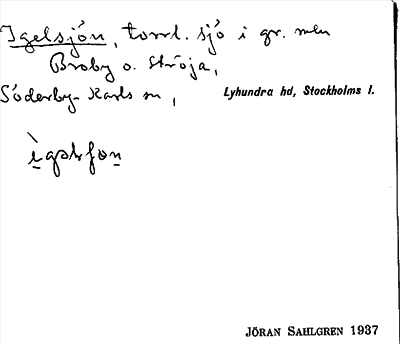 Igelsjön, torrl. sjö i gr. mln
Broby o. Ströja,
Söderby-Karls sn, Lyhundra hd, Stockholms l.
JÖRAN SAHLGREN 1937